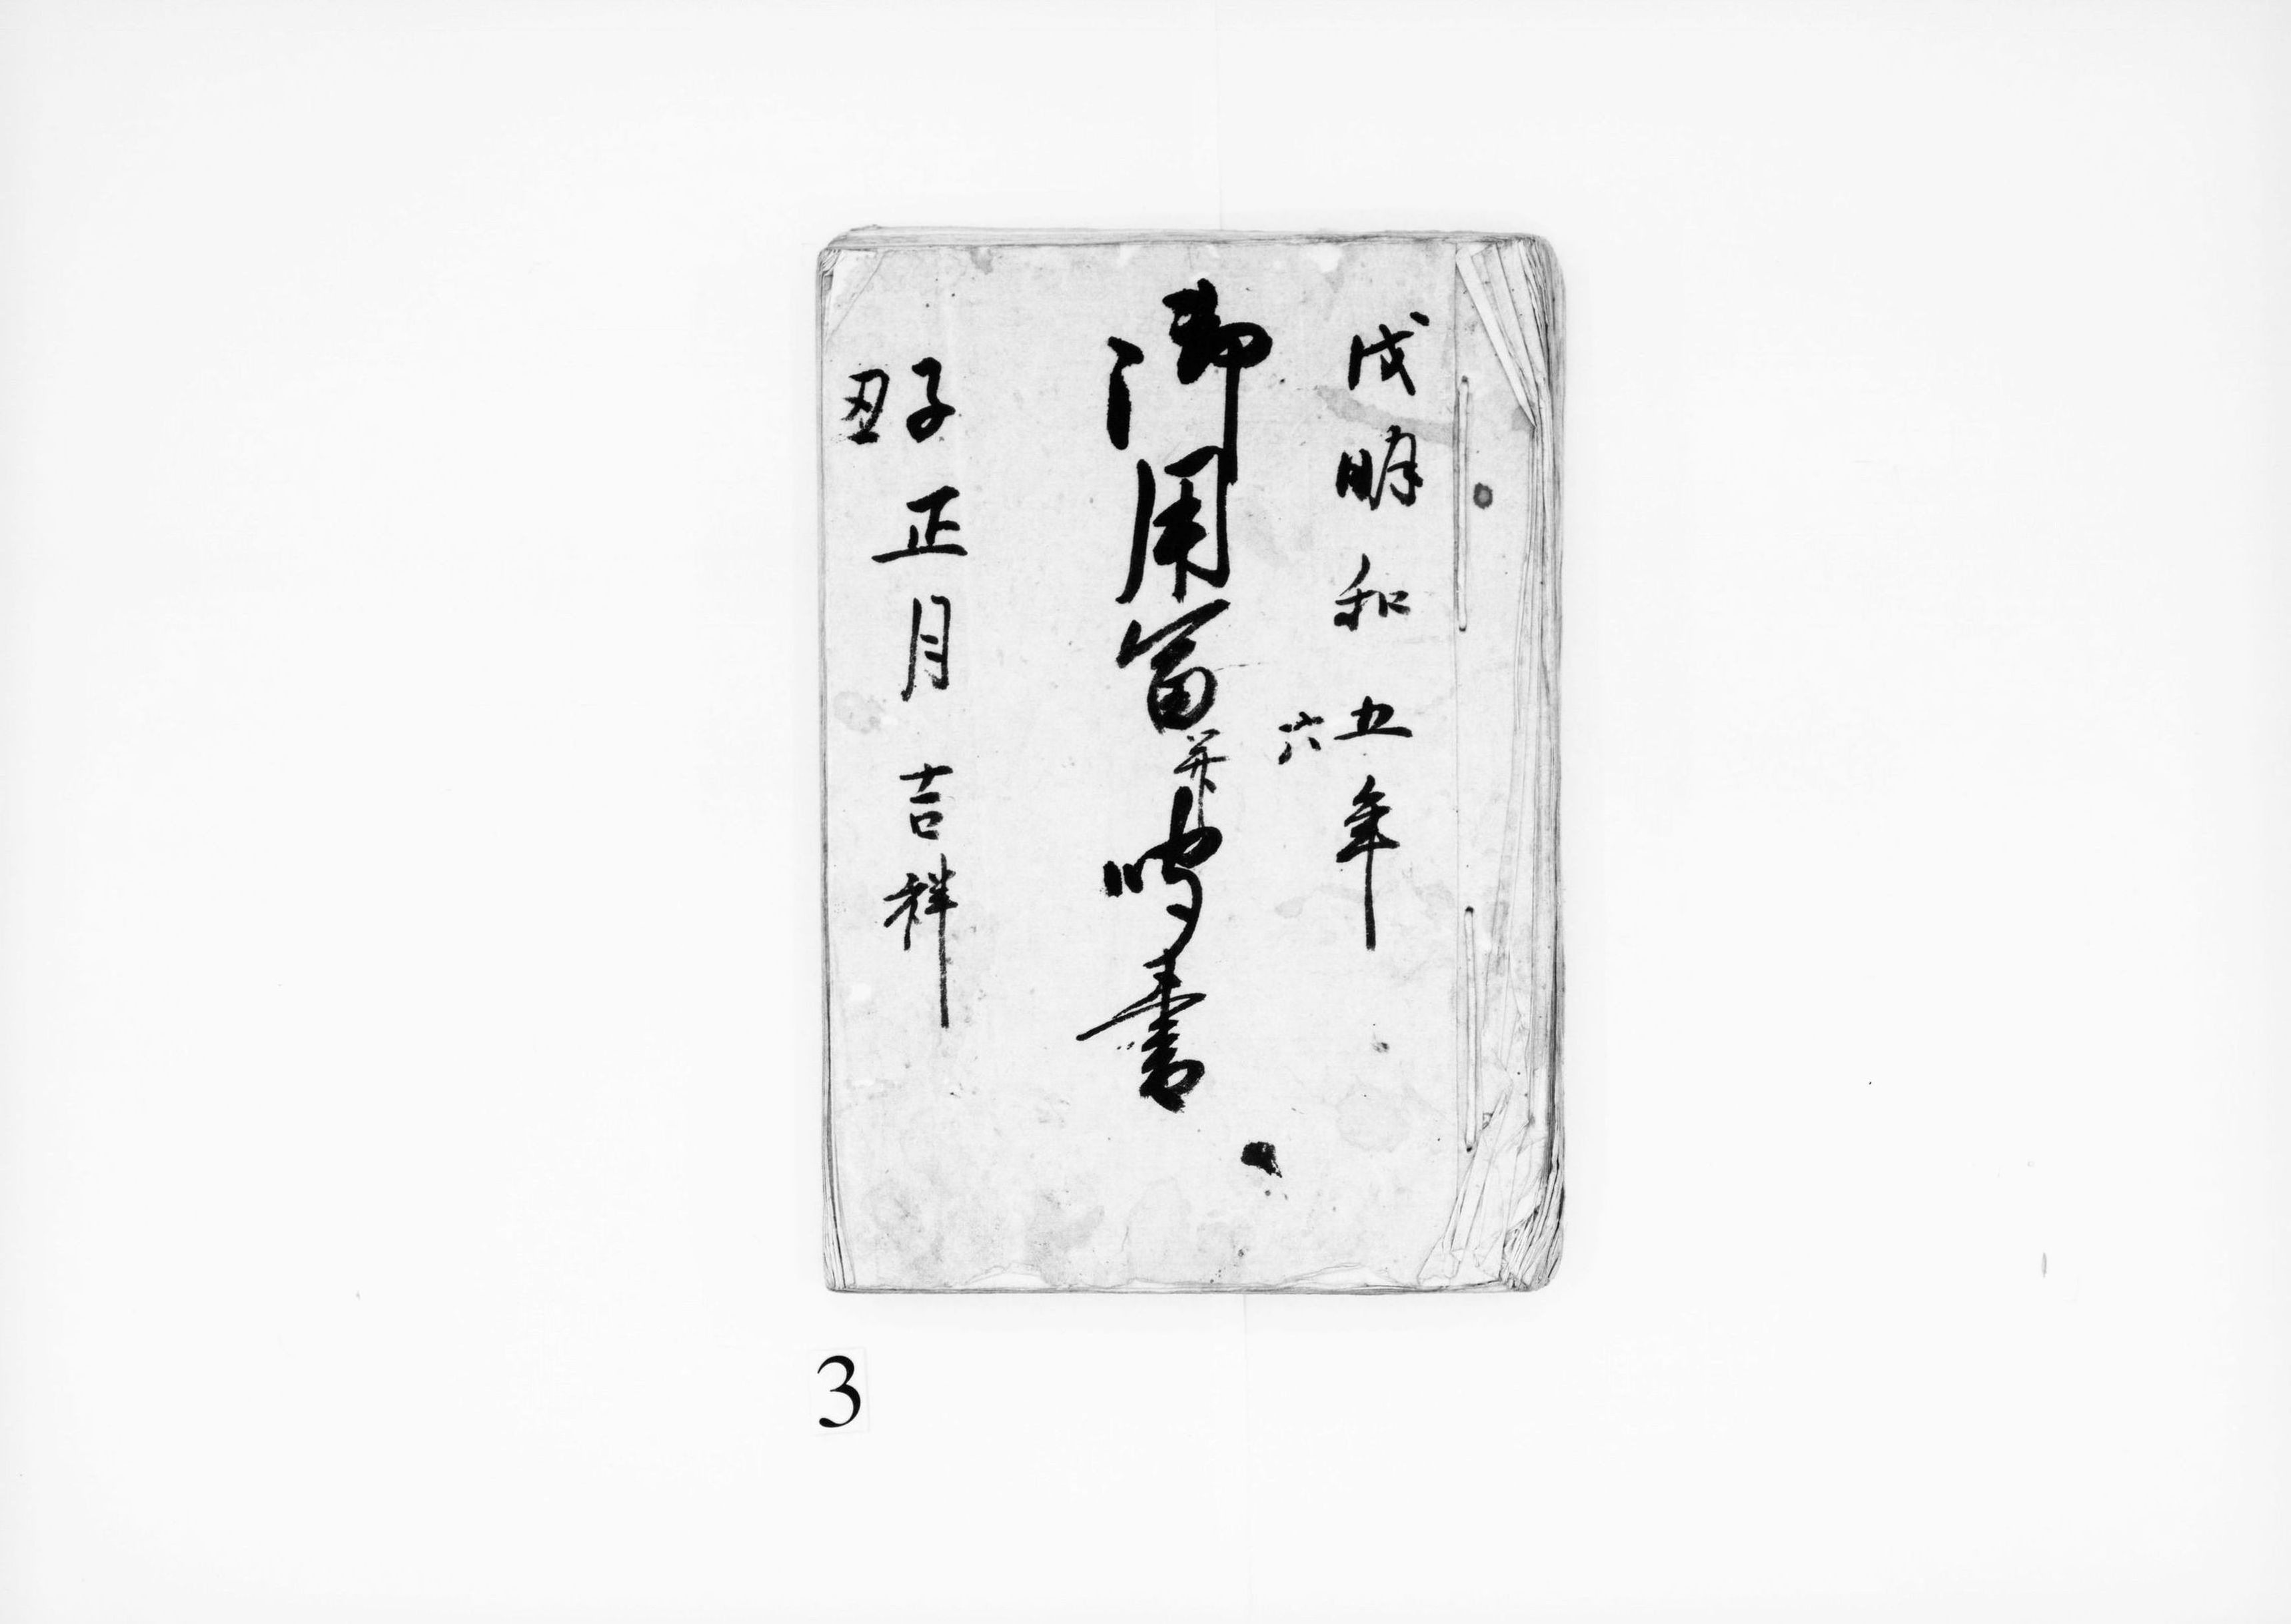 戊明和五年
六
御用富并鳴書
子正月吉祥
丑
3